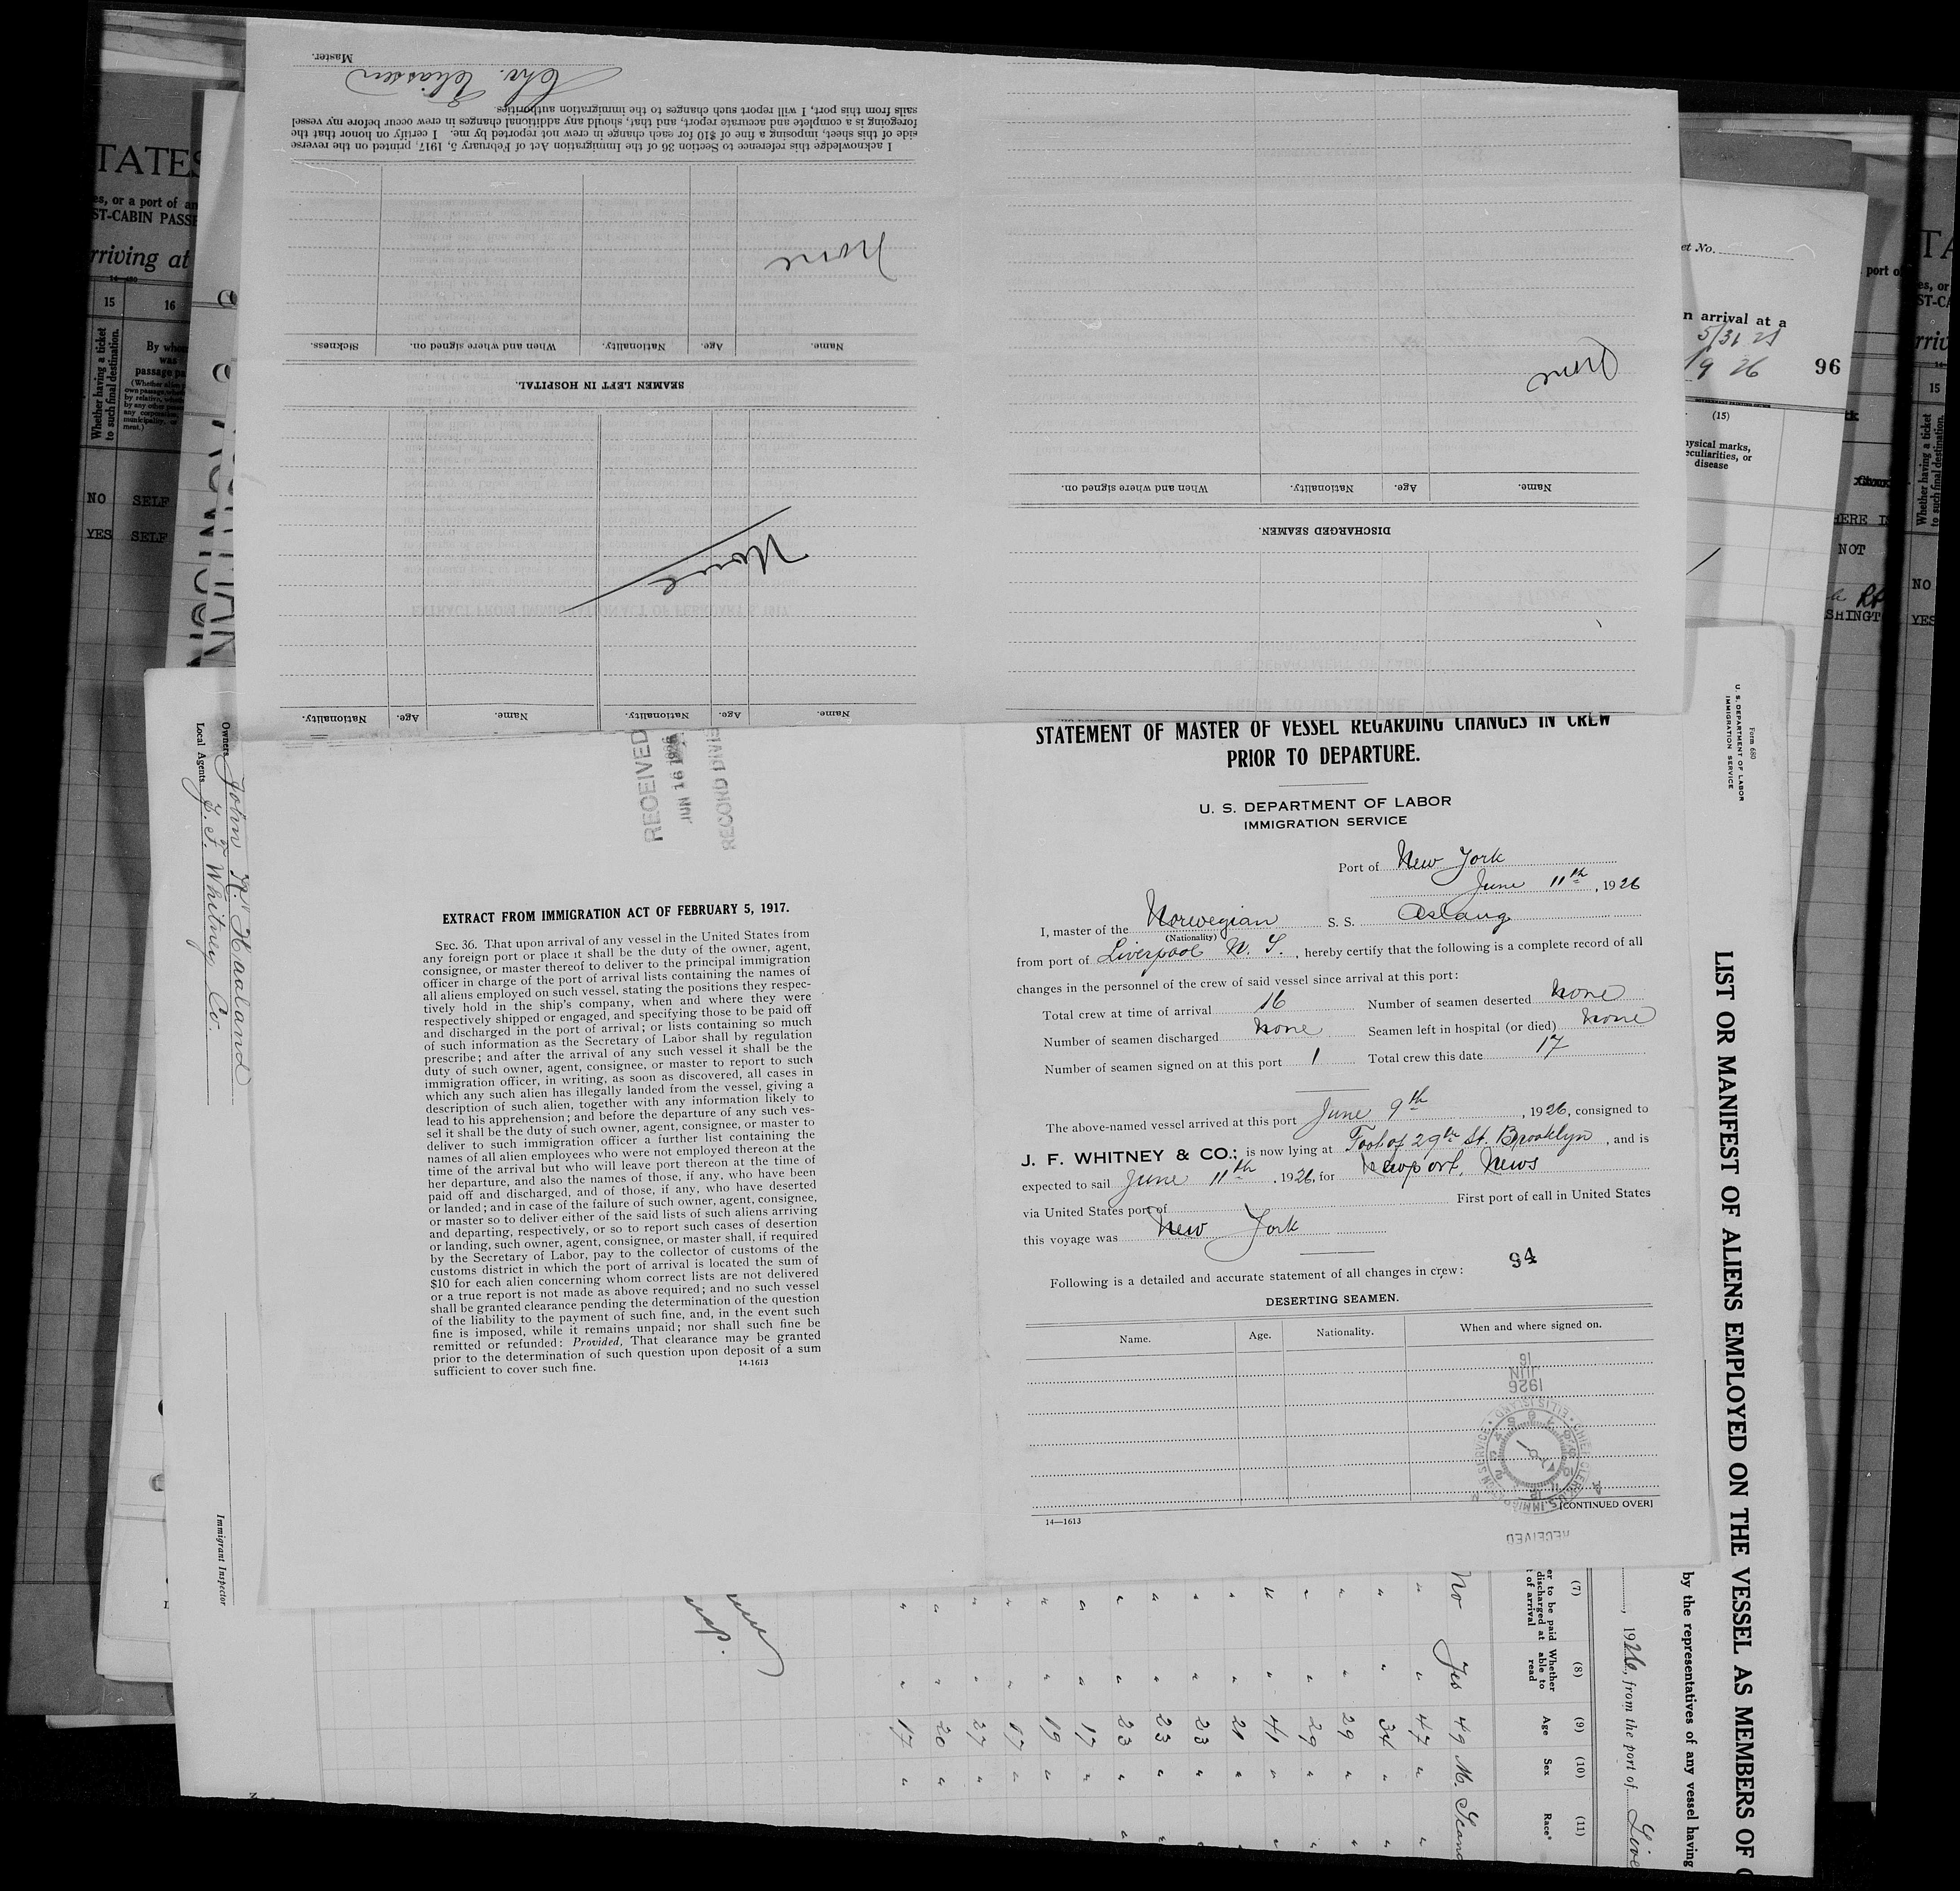 Master.
Chr. Eliassen
I acknowledge this reference to Section 36 of the Immigration Act of February 5, 1917, printed on the reverse
side of this sheet, imposing a fine of $10 for each change in crew not reported by me. I certify on honor that the
foregoing is a complete and accurate report, and that, should any additional changes in crew occur before my vessel
sails from this port, I will report such changes to the immigration authorities.
None
Name. Age. Nationality. When and where signed on. Sickness.
SEAMEN LEFT IN HOSPITAL.
None
Name. Age. Nationality. Name. Age. Nationality.
None
Name. Age. Nationality. When and where signed on.
DISCHARGED SEAMEN.
TATES
es, or a port of an
ST-CABIN PASSE
rriving at
14—480
15 16
Whether having a ticket
to such final destination.
By whom
was
passage pa
NO SELF
YES SELF
et No.
n arrival at a
5/31 21
19 26
96
(15)
hysical marks,
eculiarities, or
disease
port o
HERE IS
NOT
SHINGT
TA
es, or
ST-CA
rriv
15
Whether having a ticket
to such final destination.
NO
YES
Owners John K. Haaland
Local Agents J. F. Whitney & Co.
Immigrant Inspector
RECEIVED
JUN 16 1926
RECORD DIVIS
EXTRACT FROM IMMIGRATION ACT OF FEBRUARY 5, 1917.
SEC. 36. That upon arrival of any vessel in the United States from
any foreign port or place it shall be the duty of the owner, agent,
consignee, or master thereof to deliver to the principal immigration
officer in charge of the port of arrival lists containing the names of
all aliens employed on such vessel, stating the positions they respec-
tively hold in the ship's company, when and where they were
respectively shipped or engaged, and specifying those to be paid off
and discharged in the port of arrival; or lists containing so much
of such information as the Secretary of Labor shall by regulation
prescribe; and after the arrival of any such vessel it shall be the
duty of such owner, agent, consignee, or master to report to such
immigration officer, in writing, as soon as discovered, all cases in
which any such alien has illegally landed from the vessel, giving a
description of such alien, together with any information likely to
lead to his apprehension; and before the departure of any such ves-
sel it shall be the duty of such owner, agent, consignee, or master to
deliver to such immigration officer a further list containing the
names of all alien employees who were not employed thereon at the
time of the arrival but who will leave port thereon at the time of
her departure, and also the names of those, if any, who have been
paid off and discharged, and of those, if any, who have deserted
or landed; and in case of the failure of such owner, agent, consignee,
or master so to deliver either of the said lists of such aliens arriving
and departing, respectively, or so to report such cases of desertion
or landing, such owner, agent, consignee, or master shall, if required
by the Secretary of Labor, pay to the collector of customs of the
customs district in which the port of arrival is located the sum of
$10 for each alien concerning whom correct lists are not delivered
or a true report is not made as above required; and no such vessel
shall be granted clearance pending the determination of the question
of the liability to the payment of such fine, and, in the event such
fine is imposed, while it remains unpaid; nor shall such fine be
remitted or refunded: Provided, That clearance may be granted
prior to the determination of such question upon deposit of a sum
sufficient to cover such fine. 14-1613
STATEMENT OF MASTER OF VESSEL REGARDING CHANGES IN CREW
PRIOR TO DEPARTURE.
U. S. DEPARTMENT OF LABOR
IMMIGRATION SERVICE
Port of New York
June 11th, 1926
I, master of the Norwegian S. S. Aslaug
(Nationality)
from port of Liverpool N. S., hereby certify that the following is a complete record of all
changes in the personnel of the crew of said vessel since arrival at this port:
Total crew at time of arrival 16 Number of seamen deserted None
Number of seamen discharged None Seamen left in hospital (or died) None
Number of seamen signed on at this port 1 Total crew this date 17
The above-named vessel arrived at this port June 9th, 1926, consigned to
J. F. WHITNEY & CO.; is now lying at Foot of 29th St. Brooklyn, and is
expected to sail June 11th, 1926, for Newport News
via United States port of First port of call in United States
this voyage was New York
94
Following is a detailed and accurate statement of all changes in crew:
DESERTING SEAMEN.
Name. Age. Nationality. When and where signed on.
16
JUN
1926
CHIEF CLERK U.S. IMMIGRATION SERVICE ELLIS ISLAND
[CONTINUED OVER]
14—1613
RECEIVED
Form 680
U. S. DEPARTMENT OF LABOR
IMMIGRATION SERVICE
LIST OR MANIFEST OF ALIENS EMPLOYED ON THE VESSEL AS MEMBERS OF C
by the representatives of any vessel having
, 1926, from the port of Live
(7) (8) (9) (10) (11)
er to be paid
discharged at
t of arrival
Whether
able to
read
Age Sex Race*
No Yes 49 M. Scand
" " 47 "
" " 34 "
" " 29 "
" " 29 "
" " 41 "
" " 21 "
" " 23 "
" " 23 "
" " 23 "
" " 17 "
" " 19 "
" " 17 "
" " 27 "
" " 20 "
" " 17 "